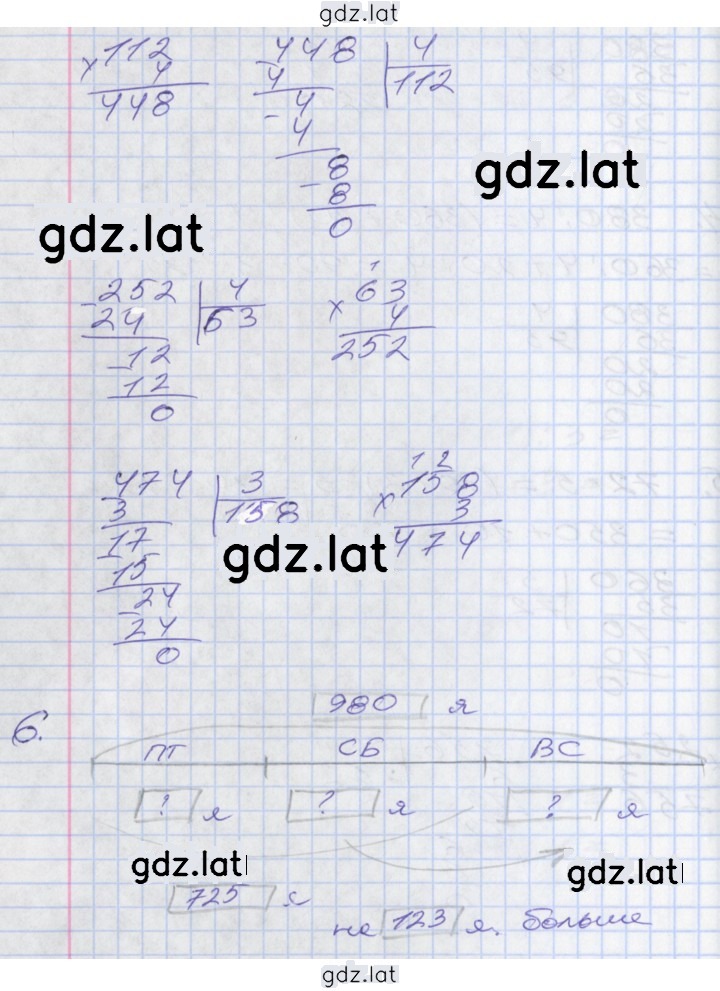 gdz.lat
112 448 | 4
× 4 4 112
448 - 4
4
- 8
8
0
gdz.lat
gdz.lat
- 252 | 4 ¹63
24 63 × 4
- 12 252
12
0
474 | 3 ¹²158
3 158 × 3
17 474
15
- 24
24
0
gdz.lat
6.
980 я
ПТ СБ ВС
? я ? я ? я
gdz.lat
gdz.lat
725 я
на 123 я. больше
gdz.lat